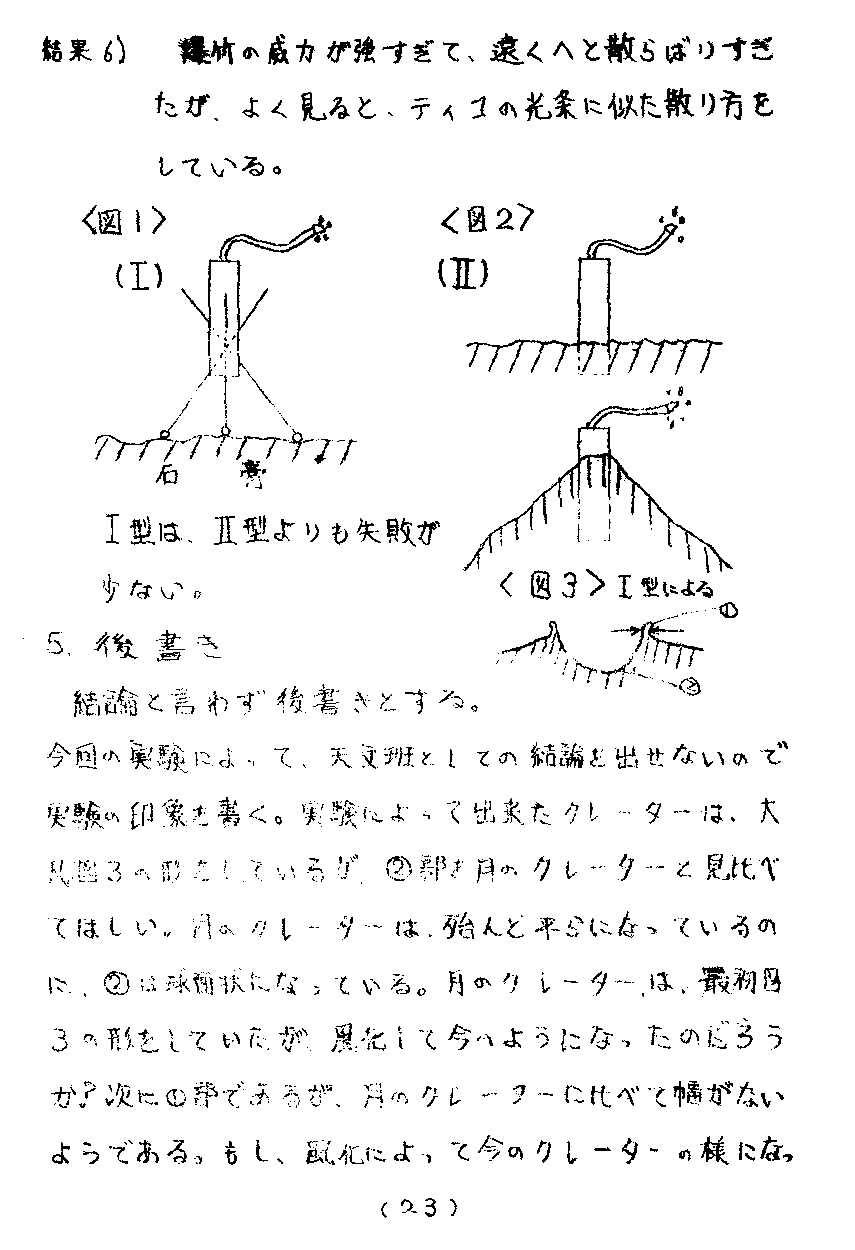 結果6) 爆竹の威力が強すぎて、遠くへと散らばりすぎ
たが、よく見ると、ティコの光条に似た散り方を
している。
〈図1〉
(Ⅰ)
〈図2〉
(Ⅱ)
石膏
Ⅰ型は、Ⅱ型よりも失敗が
少ない。
〈図3〉Ⅰ型による
①
②
5. 後書き
結論と言わず後書きとする。
今回の実験によって、天文班としての結論を出せないので
実験の印象を書く。実験によって出来たクレーターは、大
凡図3の形をしているが、②部を月のクレーターと見比べ
てほしい。月のクレーターは、殆んど平らになっているの
に、②は球面状になっている。月のクレーターは、最初図
3の形をしていたが、風化して今のようになったのだろう
か?次に①部であるが、月のクレーターに比べて幅がない
ようである。もし、風化によって今のクレーターの様になっ
(23)